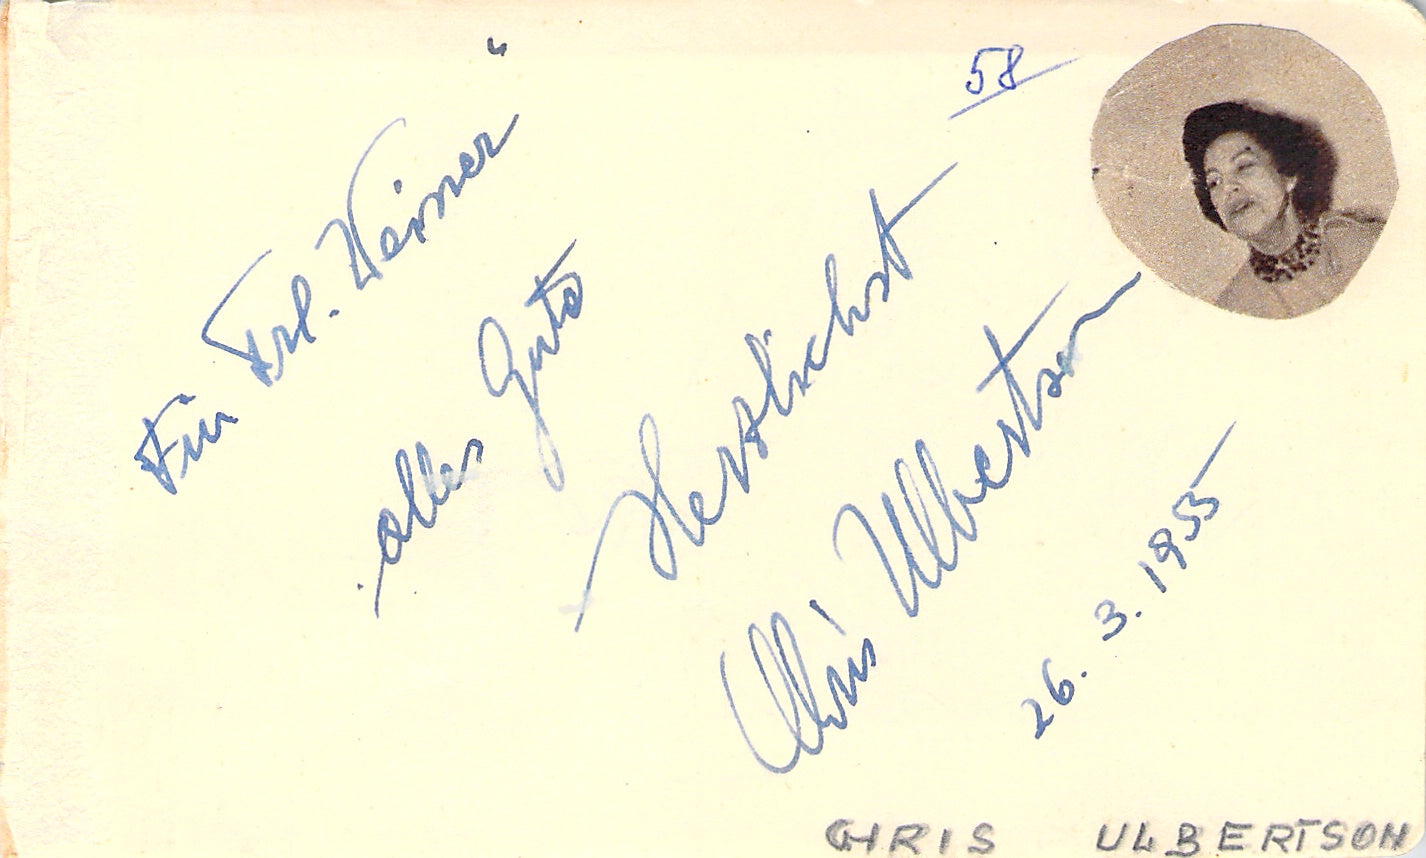 58
Für Frl.
alles Gute
Herzlichst
Chris Ulbertson
26. 3. 1955
CHRIS ULBERTSON